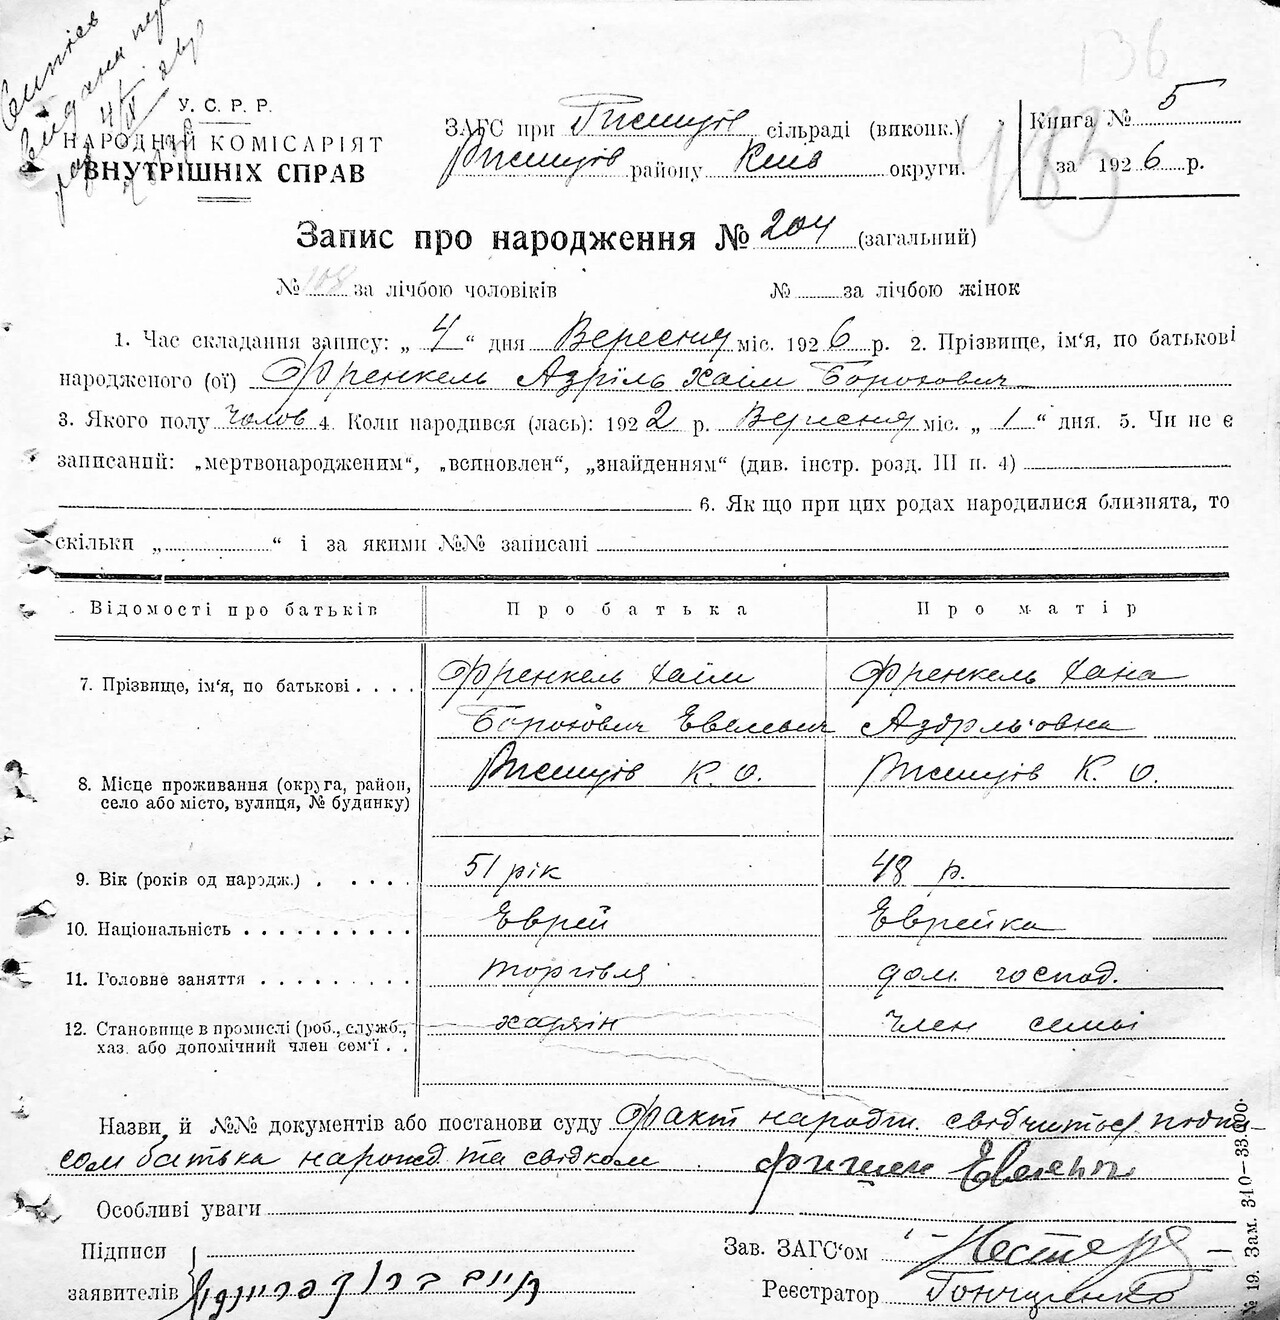 У. С. Р. Р.
НАРОДНІЙ КОМІСАРІЯТ
ВНУТРІШНІХ СПРАВ
136
183
ЗАГС при сільраді (виконк.)
району Київ округи.
Книга № 5
за 1926 р.
Запис про народження № 204 (загальний)
№ 108 за лічбою чоловіків № за лічбою жінок
1. Час складання запису: „ 4 “ дня Вересня міс. 1926 р. 2. Прізвище, ім‘я, по батькові
народженого (ої) Френкель Азріль Хаїм Борохович
3. Якого полу чолов 4. Коли народився (лась): 1922 р. Вересня міс. „ 1 “ дня. 5. Чи не є
записаний: „мертвонародженим“, „всиновлен“, „знайденням“ (див. інстр. розд. III п. 4)
6. Як що при цих родах народилися близнята, то
скільки „ “ і за якими №№ записані
Відомості про батьків Про батька Про матір
7. Прізвище, ім‘я, по батькові . . . . Френкель Хаїм Френкель Хана
Борохович Евелевич Азрільовна
8. Місце проживання (округа, район, К. О. К. О.
село або місто, вулиця, № будинку)
9. Вік (років од народж.) . . . . . 51 рік 48 р.
10. Національність . . . . . . . . . . Еврей Еврейка
11. Головне заняття . . . . . . . . . торгівля дом. господ.
12. Становище в промислі (роб., служб., хазяін член семьі
хаз. або допомічний член сем‘ї . .
Назви й №№ документів або постанови суду Факт народж. свідчиться підпи-
сом батька нарожд. та свідком
Особливі уваги
Підписи
заявителів
Зав. ЗАГС‘ом
Реєстратор Гончаренко
№ 19. Зам. 310—33.000.